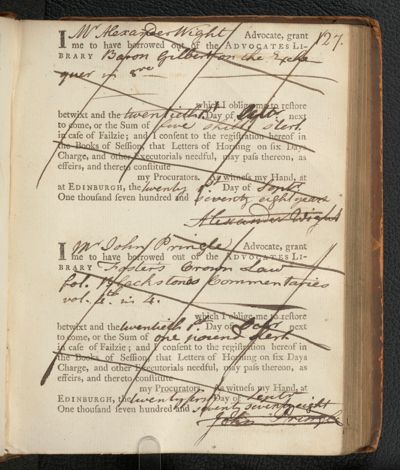 127.
I Mr Alexander Wight Advocate, grant
me to have borrowed out of the ADVOCATES LI-
BRARY Baron Gilbert on the Exche
quer in 8vo
which I oblige me to restore
betwixt and the twentieth Day of next
to come, or the Sum of five shills sterl.
in case of Failzie; and I consent to the registration hereof in
the Books of Session, that Letters of Horning on six Days
Charge, and other Executorials needful, may pass thereon, as
effeirs, and thereto constitute
my Procurators. As witness my Hand, at
at EDINBURGH, the twenty Day of Septr
One thousand seven hundred and seventy eight years
Alexander Wight
I Mr John Pringle Advocate, grant
me to have borrowed out of the ADVOCATES LI-
BRARY Foster's Crown Law
fol. Blackstones Commentaries
vol. 4th in 4.
which I oblige me to restore
betwixt and the twentieth Day of next
to come, or the Sum of one pound sterl.
in case of Failzie; and I consent to the registration hereof in
the Books of Session, that Letters of Horning on six Days
Charge, and other Executorials needful, may pass thereon, as
effeirs, and thereto constitute
my Procurators. As witness my Hand, at
EDINBURGH, the twenty first Day of Septr
One thousand seven hundred and seventy eight
John Pringle